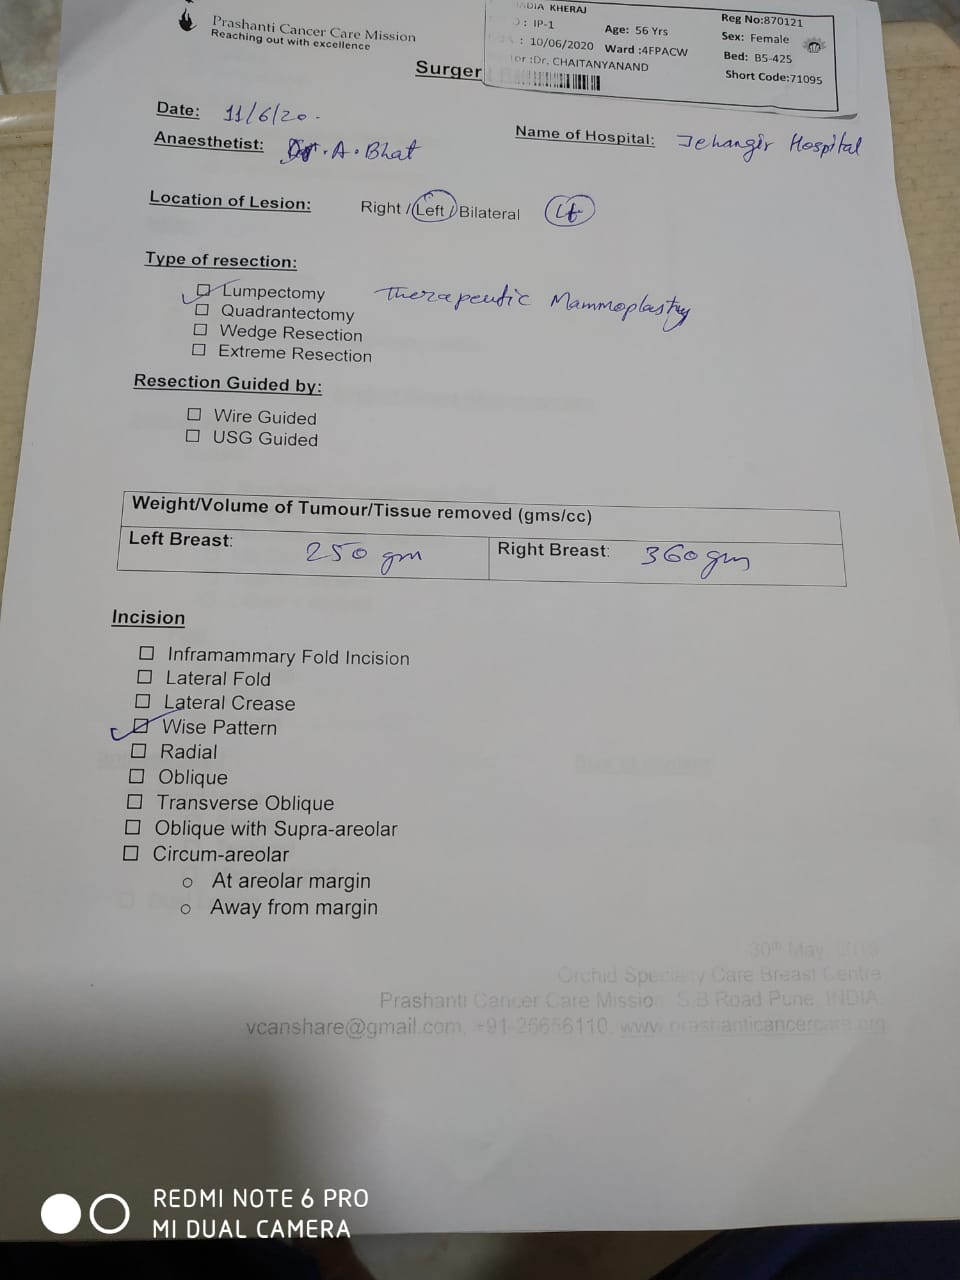 Prashanti Cancer Care Mission
Reaching out with excellence
KHERAJ
: IP-1
Age: 56 Yrs
: 10/06/2020 Ward :4FPACW
:Dr. CHAITANYANAND
Reg No:870121
Sex: Female
Bed: B5-425
Short Code:71095
Surger
Date: 11/6/20.
Anaesthetist: Dr. A. Bhat
Name of Hospital: Jehangir Hospital
Location of Lesion: Right / Left / Bilateral Lt
Type of resection:
Lumpectomy Therapeutic Mammoplastry
Quadrantectomy
Wedge Resection
Extreme Resection
Resection Guided by:
Wire Guided
USG Guided
Weight/Volume of Tumour/Tissue removed (gms/cc)
Left Breast: 250 gm Right Breast: 360 gm
Incision
Inframammary Fold Incision
Lateral Fold
Lateral Crease
Wise Pattern
Radial
Oblique
Transverse Oblique
Oblique with Supra-areolar
Circum-areolar
o At areolar margin
o Away from margin
30th May, 2019
Orchid Specialty Care Breast Centre
Prashanti Cancer Care Mission S.B.Road Pune, INDIA.
vcanshare@gmail.com, +91-25656110, www.prashanticancercare.org
REDMI NOTE 6 PRO
MI DUAL CAMERA